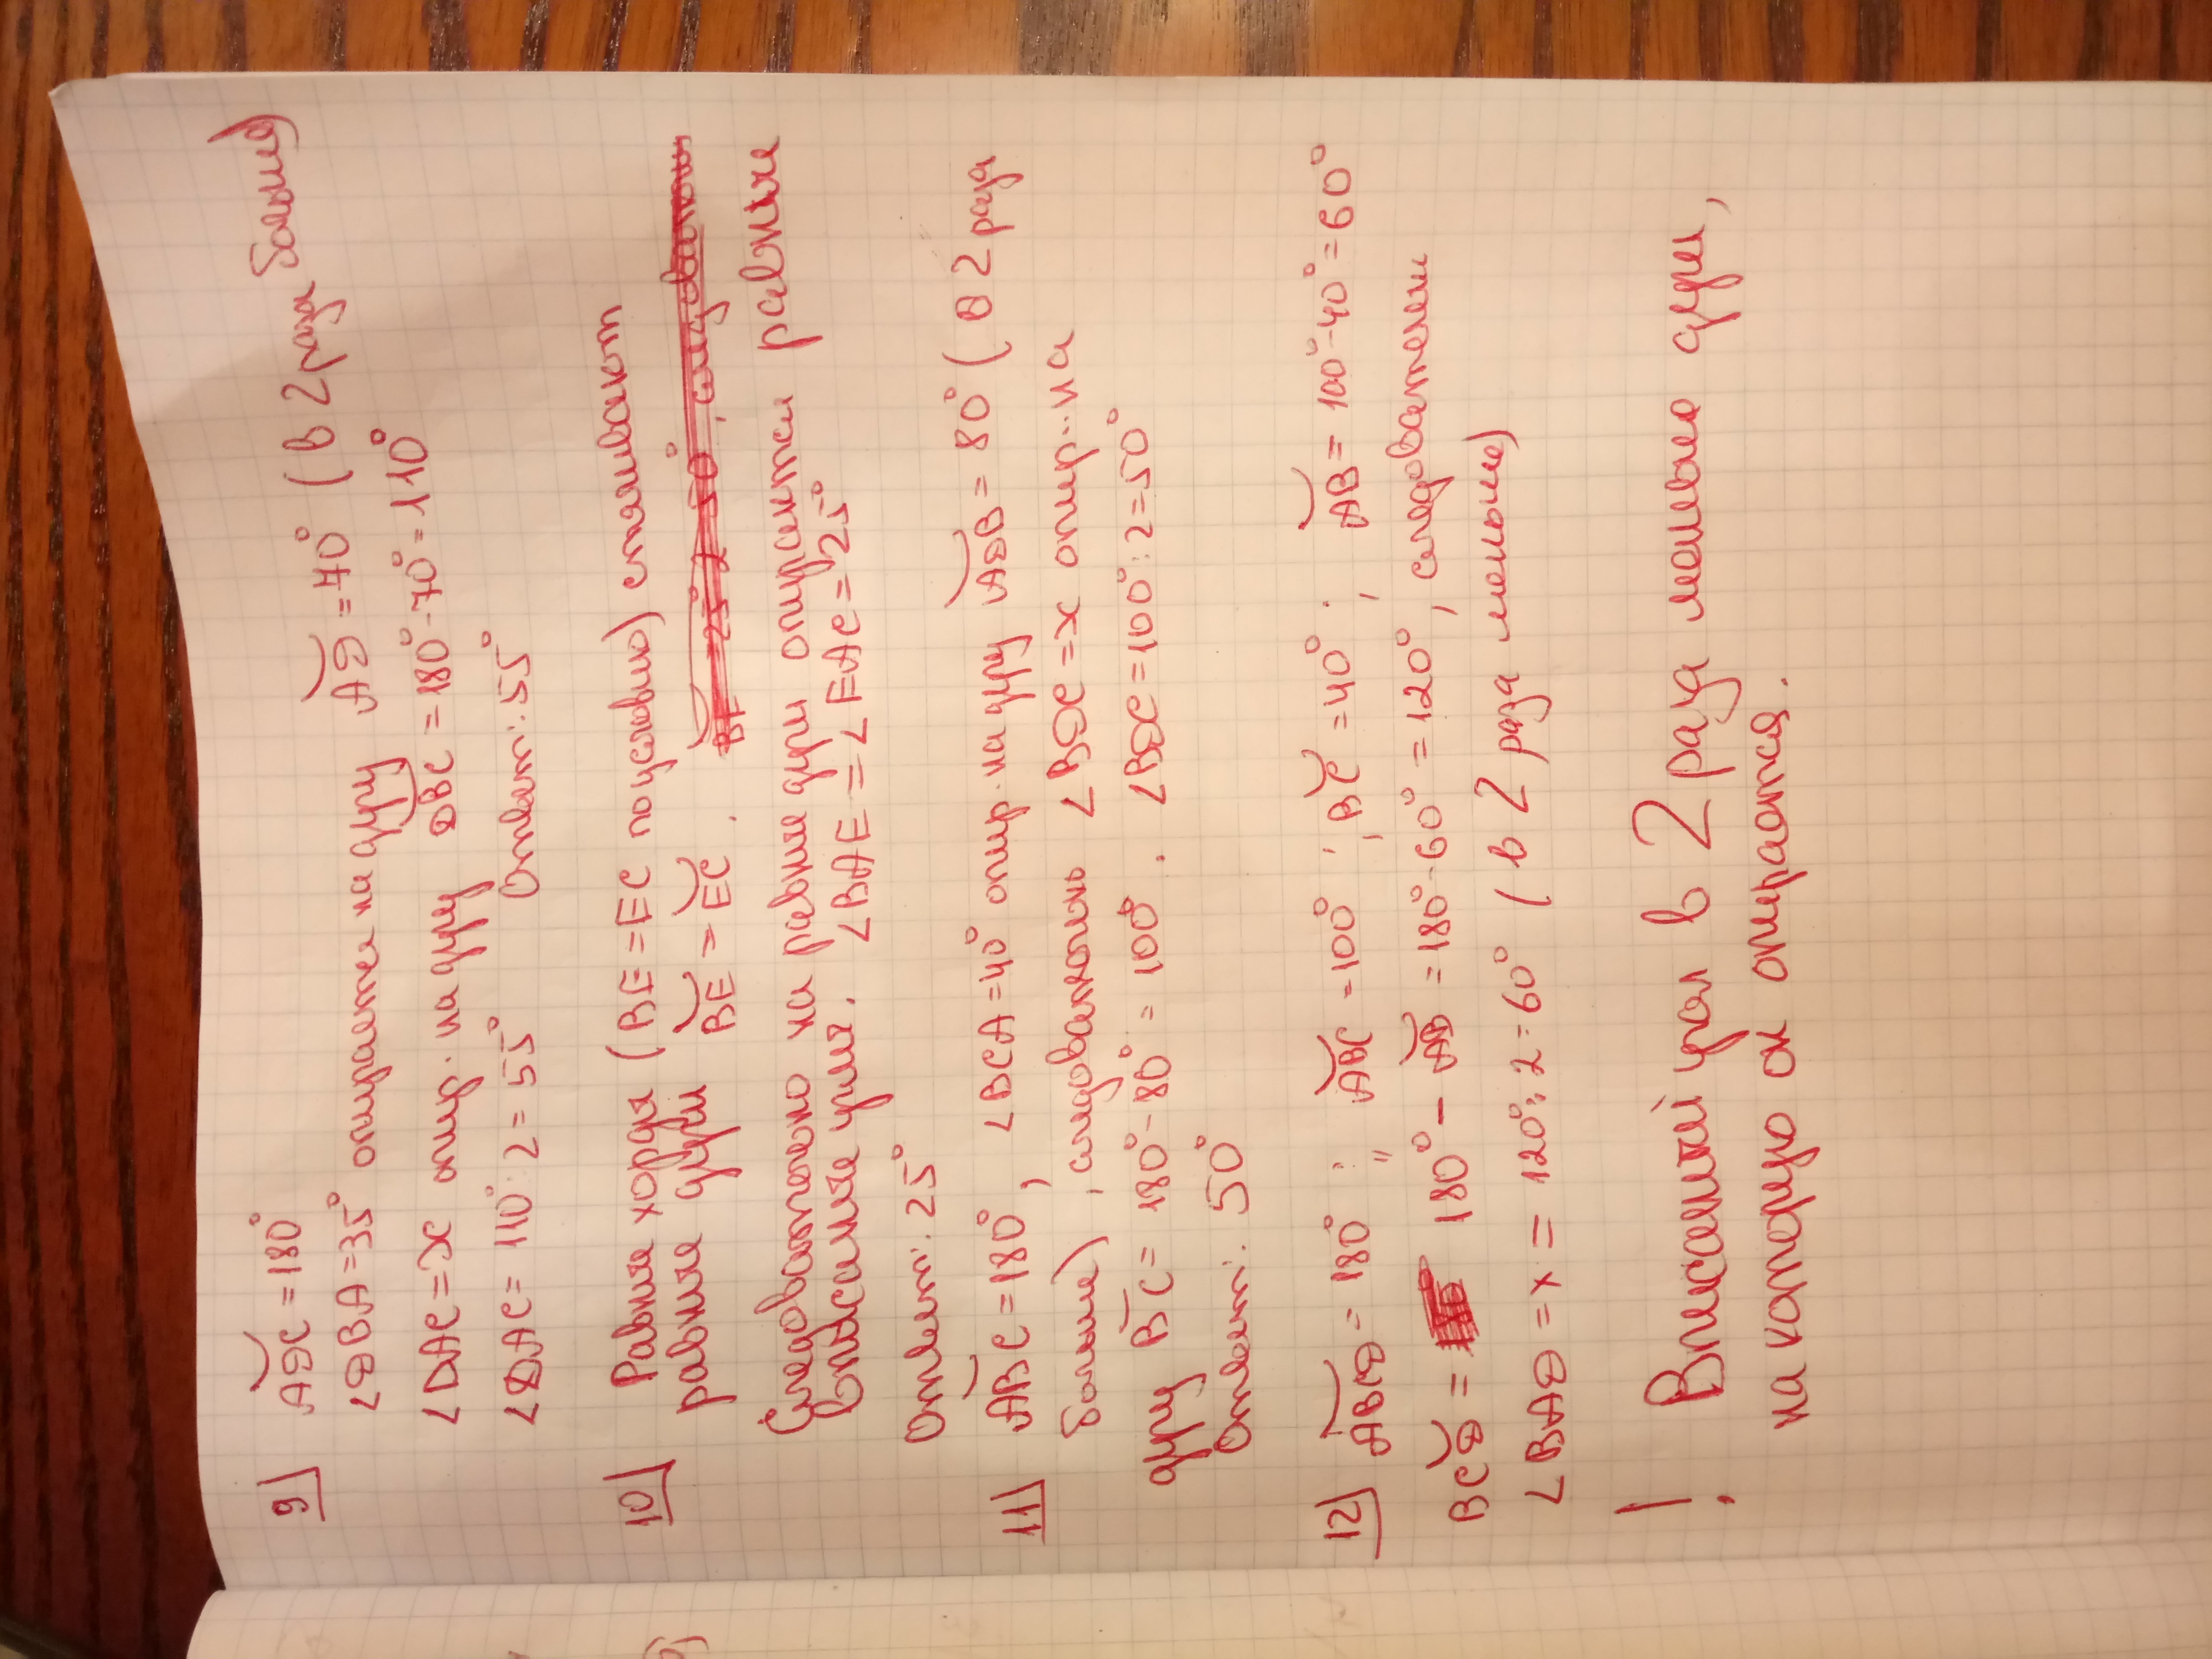 9) ADC = 180°
∠DBA = 35° опирается на дугу AD = 40° (в 2 раза больше)
∠DAC = x опир. на дугу DBC = 180° - 70° = 110°
∠DAC = 110° : 2 = 55° Ответ: 55°
10) Равные хорды (BE = EC по условию) стягивают
равные дуги BE = EC.
Следовательно на равные дуги опираются равные
вписанные углы. ∠BAE = ∠EAC = 25°
Ответ: 25°
11) ABC = 180°, ∠BCA = 40° опир. на дугу ADB = 80° (в 2 раза
больше), следовательно ∠BDC = x опир. на
дугу BC = 180° - 80° = 100°. ∠BDC = 100° : 2 = 50°
Ответ: 50°
12) ABCD = 180° ; ABC = 100° ; BC = 40° ; AB = 100° - 40° = 60°
BCD = 180° - AB = 180° - 60° = 120°, следовательно
∠BAD = x = 120° : 2 = 60° (в 2 раза меньше)
! Вписанный угол в 2 раза меньше дуги,
на которую он опирается.